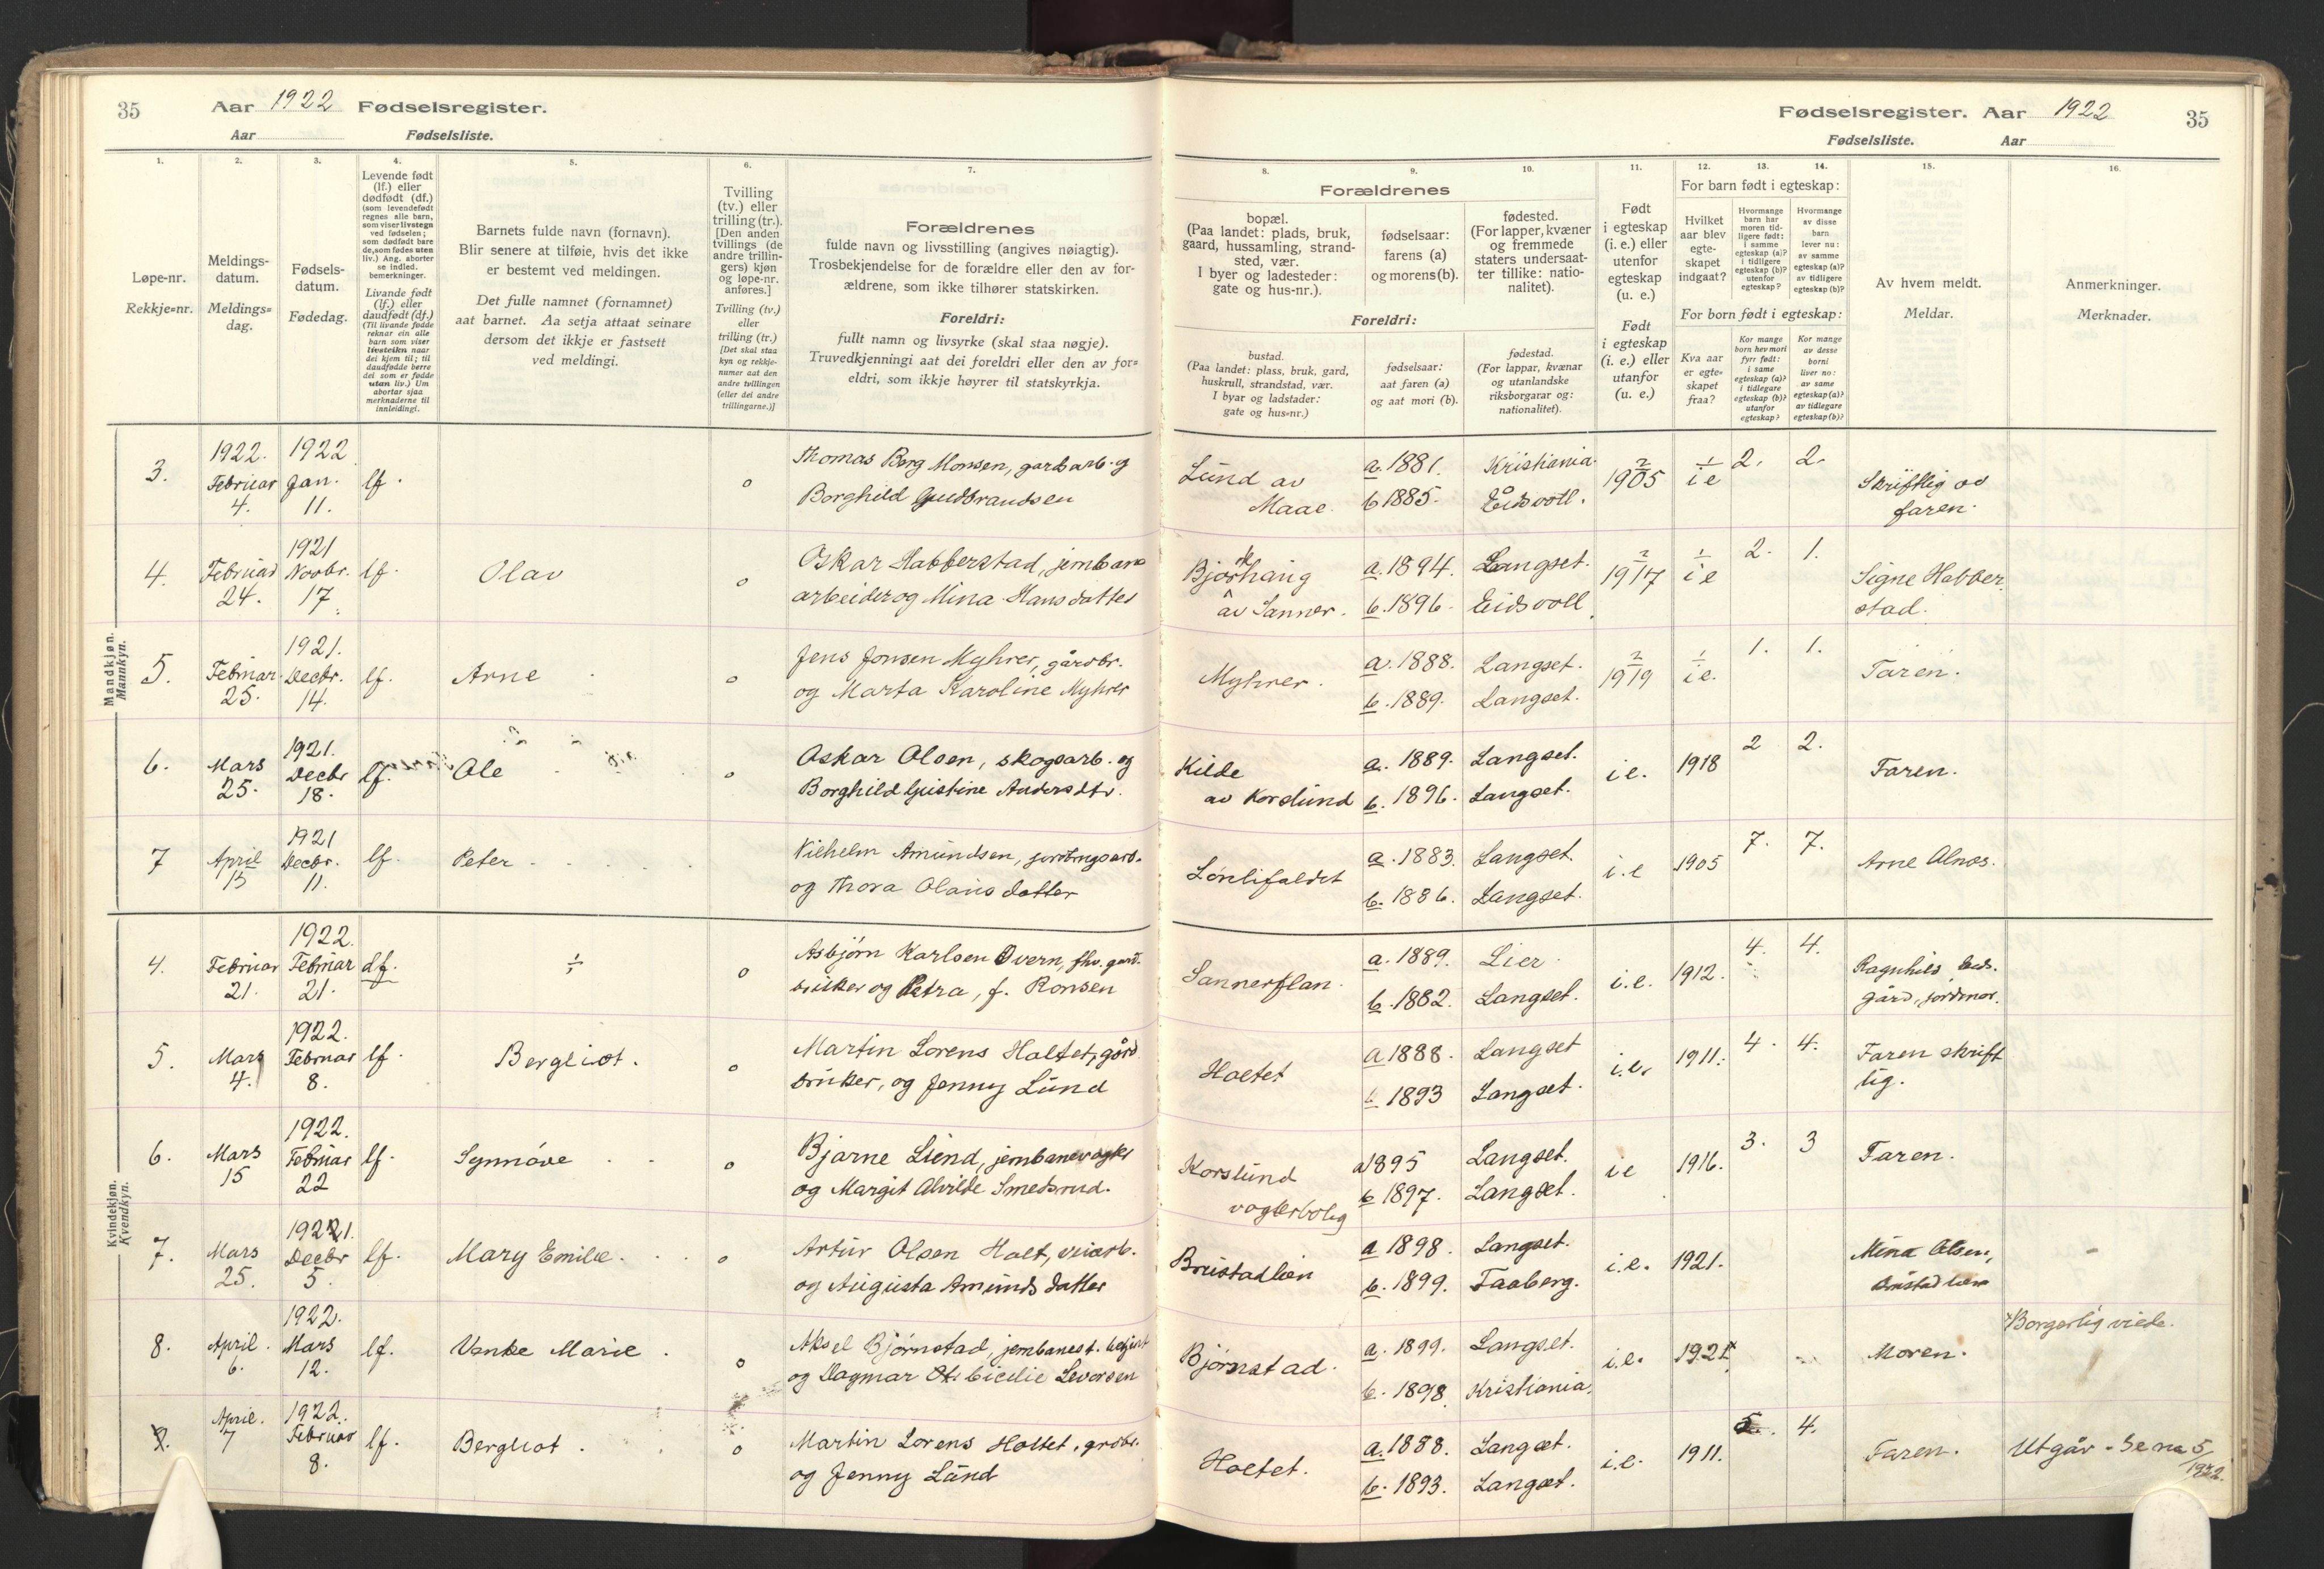 35
Aar 1922 Fødselsregister.
Aar Fødselsliste.
1.
2.
3.
4.
5.
6.
7.
Løpe-nr.
Rekkje-nr.
Meldings-
datum.
Meldings-
dag.
Fødsels-
datum.
Fødedag.
Levende født
(lf.) eller
dødfødt (df.)
(som levendefødt
regnes alle barn,
som viser livstegn
ved fødselen;
som dødfødt bare
de, som fødes uten
liv.) Ang. aborter
se indled.
bemerkninger.
Livande født
(lf.) eller
daudfødt (df.)
(Til livande fødde
reknar ein alle
barn som viser
livsteikn naar
dei kjem til; til
daudfødde berre
dei som er fødde
utan liv.) Um
abortar sjaa
merknaderne til
innleidingi.
Barnets fulde navn (fornavn).
Blir senere at tilføie, hvis det ikke
er bestemt ved meldingen.
Det fulle namnet (fornamnet)
aat barnet. Aa setja attaat seinare
dersom det ikkje er fastsett
ved meldingi.
Tvilling
(tv.) eller
trilling (tr.).
[Den anden
tvillings (de
andre trillin-
gers) kjøn
og løpe-nr.
anføres.]
Tvilling (tv.)
eller
trilling (tr.)
[Det skal staa
kyn og rekkje-
numer aat den
andre tvillingen
(eller dei andre
trillingarne.)]
Forældrenes
fulde navn og livsstilling (angives nøiagtig).
Trosbekjendelse for de forældre eller den av for-
ældrene, som ikke tilhører statskirken.
Foreldri:
fullt namn og livsyrke (skal staa nøgje).
Truvedkjenningi aat dei foreldri eller den av for-
eldri, som ikkje høyrer til statskyrkja.
Fødselsregister. Aar 1922
35
Fødselsliste. Aar
8.
9.
10.
11.
12.
13.
14.
15.
16.
Forældrenes
bopæl.
(Paa landet: plads, bruk,
gaard, hussamling, strand-
sted, vær.
I byer og ladesteder:
gate og hus-nr.).
fødselsaar:
farens (a)
og morens (b).
fødested.
(For lapper, kvæner
og fremmede
staters undersaat-
ter tillike: natio-
nalitet).
Foreldri:
bustad.
(Paa landet: plass, bruk, gard,
huskrull, strandstad, vær.
I byar og ladstader:
gate og hus-nr.)
fødselsaar:
aat faren (a)
og aat mori (b).
fødestad.
(For lappar, kvænar
og utanlandske
riksborgarar og:
nationalitet).
Født
i egteskap
(i. e.) eller
utenfor
egteskap
(u. e.)
Født
i egteskap
(i. e.) eller
utanfor
(u. e.)
For barn født i egteskap:
Hvilket
aar blev
egte-
skapet
indgaat?
Hvormange
barn har
moren tid-
ligere født:
i samme
egteskap (a)?
i tidligere
egteskap (b)?
utenfor
egteskap?
Hvormange
av disse
barn
lever nu:
av samme
egteskap (a)?
av tidligere
egteskap (b)?
For born født i egteskap:
Kva aar
er egte-
skapet
fraa?
Kor mange
born hev mori
fyrr født:
i same
egteskap (a)?
i tidlegare
egteskap (b)?
utanfor
egteskap?
Kor mange
av desse
borni
liver no:
av same
egteskap (a)?
av tidlegare
egteskap (b)?
Av hvem meldt.
Meldar.
Anmerkninger.
Merknader.
Mandkjøn.
Mannkyn.
3. 1922. Februar 4. 1922 Jan. 11. lf. o Thomas Berg Monsen, gardarb. og
Borghild Gudbrandsen
Lund av
Maae. a. 1881. b 1885. Kristiania. Eidsvoll. 1905 i e 2. 2. Skriftlig av
faren.
4. Februar 24. 1921 Novbr. 17. lf. Olav o Oskar Habberstad, jernbane
arbeider og Mina Hansdatter
av Sanner. a. 1894. b. 1896. Langset. Eidsvoll 1917 i e 2. 1. Signe Habber
stad.
5. Februar 25. 1921. Decbr. 14. lf. Arne o Jens Jonsen Myhrer, gårdbr.
og Marta Karoline Myhrer
Myhrer. a. 1888. b. 1889. Langset. Langset. 1919 i e. 1. 1. Faren.
6. Mars 25. 1921. Decbr 18. lf. Ole o Oskar Olsen, skogsarb. og
Borghild Gustine Andersdtr.
Kilde
av Korslund a. 1889. b. 1896. Langset. Langset. i e. 1918 2 2. Faren.
7 April 15 1921 Decbr. 11. lf. Peter Vilhelm Amundsen, jordbrugsarb.
og Thora Olausdatter
Lønlifaldet a. 1883. b. 1886. Langset. Langset. i. e 1905 7. 7. Arne Alnæs.
Kvindekjøn.
Kvendkyn.
4. Februar 21. 1922. Februar 21. df. ÷ o Asbjørn Karlsen Overn, fhv. gard-
bruker og Petra, f. Ronsen
Sannerflan. a. 1889. b. 1882. Lier. Langset. i. e. 1912. 4. 4. Ragnhild Eids-
gård, jordmor.
5. Mars 4. 1922. Februar 8. lf. Bergliot. o Martin Lorens Holtet, gård
bruker, og Jenny Lund
Holtet a 1888. b 1893 Langset Langset. i. e. 1911. 4. 4. Faren skrift
lig.
6. Mars 15 1922. Februar 22 lf. Synnøve o Bjarne Lund, jernbanevogter
og Margit Alvilde Smedsrud.
Korslund
vogterbolig a 1895 b 1897. Langset. Langset. i e 1916. 3. 3 Faren.
7. Mars 25. 19221. Decbr 5. lf. Mary Emilie. o Artur Olsen Holt, veiarb.
og Augusta Amundsdatter
Brustadlien a 1898. b. 1899. Langset. Faaberg. i. e. 1921. Mina Olsen,
8. April. 6. 1922. Mars 12. lf. Venke Marie. o Aksel Bjørnstad, jernbanest. betjent
og Dagmar Cicilie Levorsen
Bjørnstad. a. 1899. b. 1898 Langset. Kristiania. i. e. 1921 Moren. Borgerlig viede.
9. April. 7 1922. Februar 8. lf. Bergliot. o Martin Lorens Holtet, grdbr.
og Jenny Lund
Holtet. a. 1888. b. 1893. Langset. Langset. i. e. 1911. 5. 4. Faren. Utgår - Se no 5/1922.